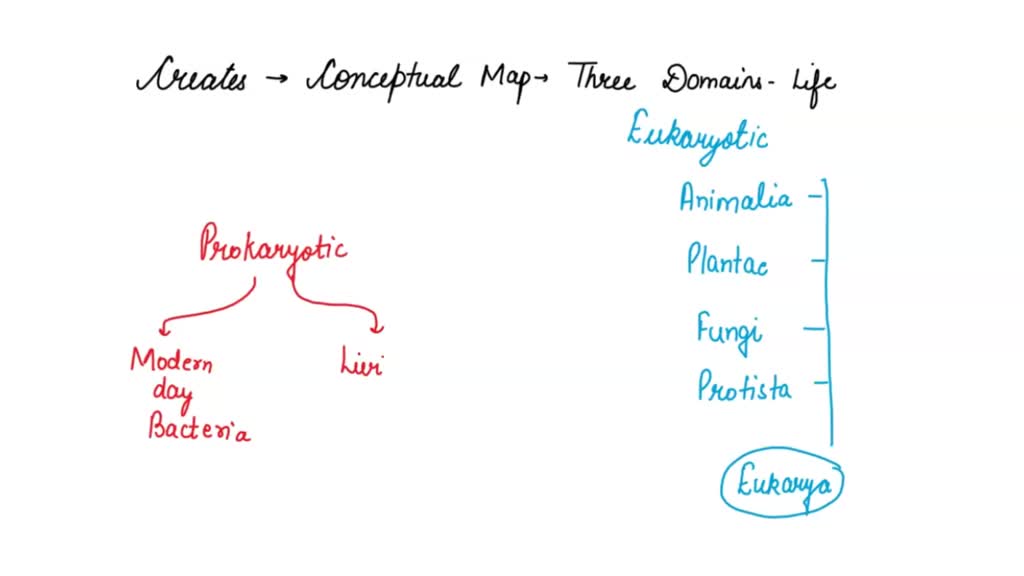 Creates → Conceptual Map → Three Domains - Life
Eukaryotic
Animalia
Plantae
Fungi
Protista
Eukarya
Prokaryotic
Modern
day
Bacteria
Livi